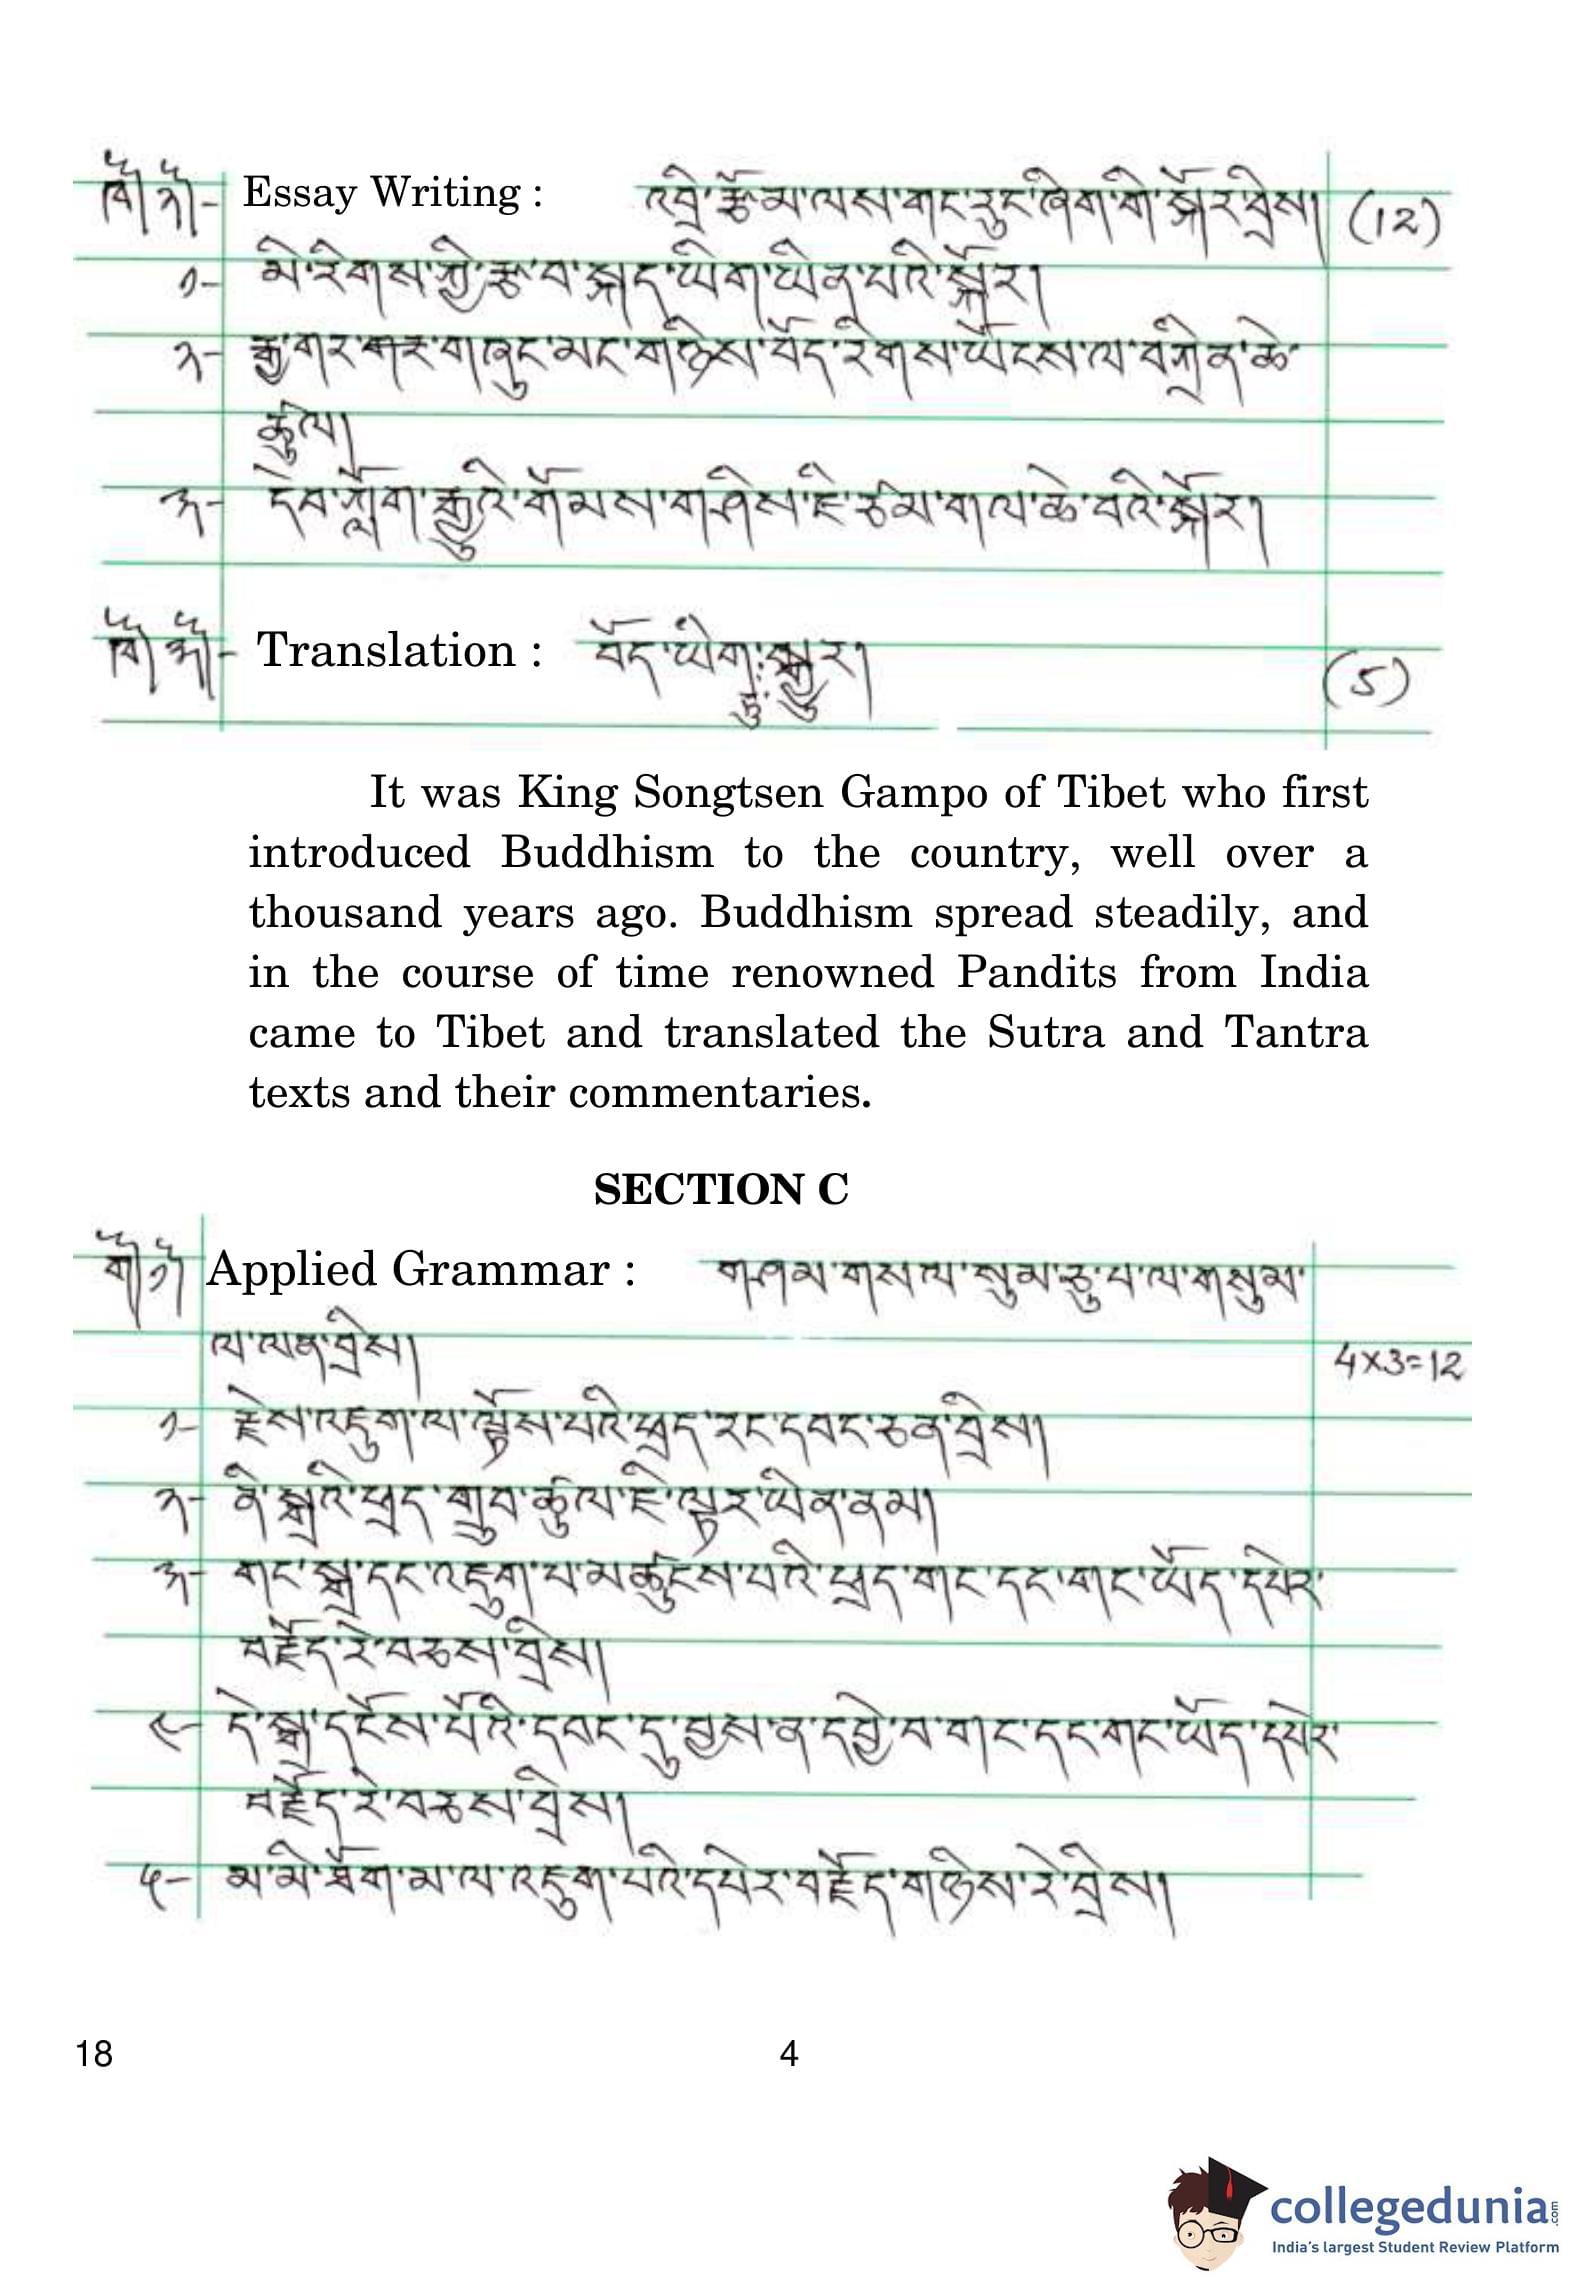 ཁོ། ༢ོ།- Essay Writing : འབྲི་རྩོམ་ལས་གང་རུང་ཞིག་གི་སྐོར་བྲིས། (12)
༡- མི་རིགས་ཀྱི་རྩ་བ་སྐད་ཡིག་ཡིན་པའི་སྐོར།
༢- རྒྱ་གར་གཞུང་མང་གཉིས་བོད་རིགས་ཡོངས་ལ་བཀྲིན་ཆེ་
ཚུལ།
༣- དེབ་ཀློག་རྒྱུའི་གོམས་གཤིས་ཇི་ཙམ་གལ་ཆེ་བའི་སྐོར།
ཁོ། ༣ོ།- Translation : བོད་ཡིག་ཏུ་སྒྱུར། (5)
It was King Songtsen Gampo of Tibet who first
introduced Buddhism to the country, well over a
thousand years ago. Buddhism spread steadily, and
in the course of time renowned Pandits from India
came to Tibet and translated the Sutra and Tantra
texts and their commentaries.
SECTION C
གོ། ༡ོ། Applied Grammar : གཤམ་གསལ་སུམ་ཅུ་པ་ལ་གསུམ་
ལ་ལན་བྲིས། 4x3=12
༡- རྗེས་འཇུག་ལ་ལྟོས་པའི་ཕྲད་རང་དབང་ཅན་བྲིས།
༢- ནི་སྒྲའི་ཕྲད་གྲུབ་ཚུལ་ཇི་ལྟར་ཡིན་ནམ།
༣- གང་སྒྲ་དང་འཇུག་པ་མཚུངས་པའི་ཕྲད་གང་དང་གང་ཡོད་དཔེར་
བརྗོད་རེ་བཅས་བྲིས།
༤- དེ་སྒྲ་དངོས་པོའི་དབང་དུ་བྱས་ན་དབྱེ་བ་གང་དང་གང་ཡོད་དཔེར་
བརྗོད་རེ་བཅས་བྲིས།
༥- མ་མི་ཐོག་མ་ལ་འཇུག་པའི་དཔེར་བརྗོད་གཉིས་རེ་བྲིས།
18 4
collegedunia.com
India's largest Student Review Platform